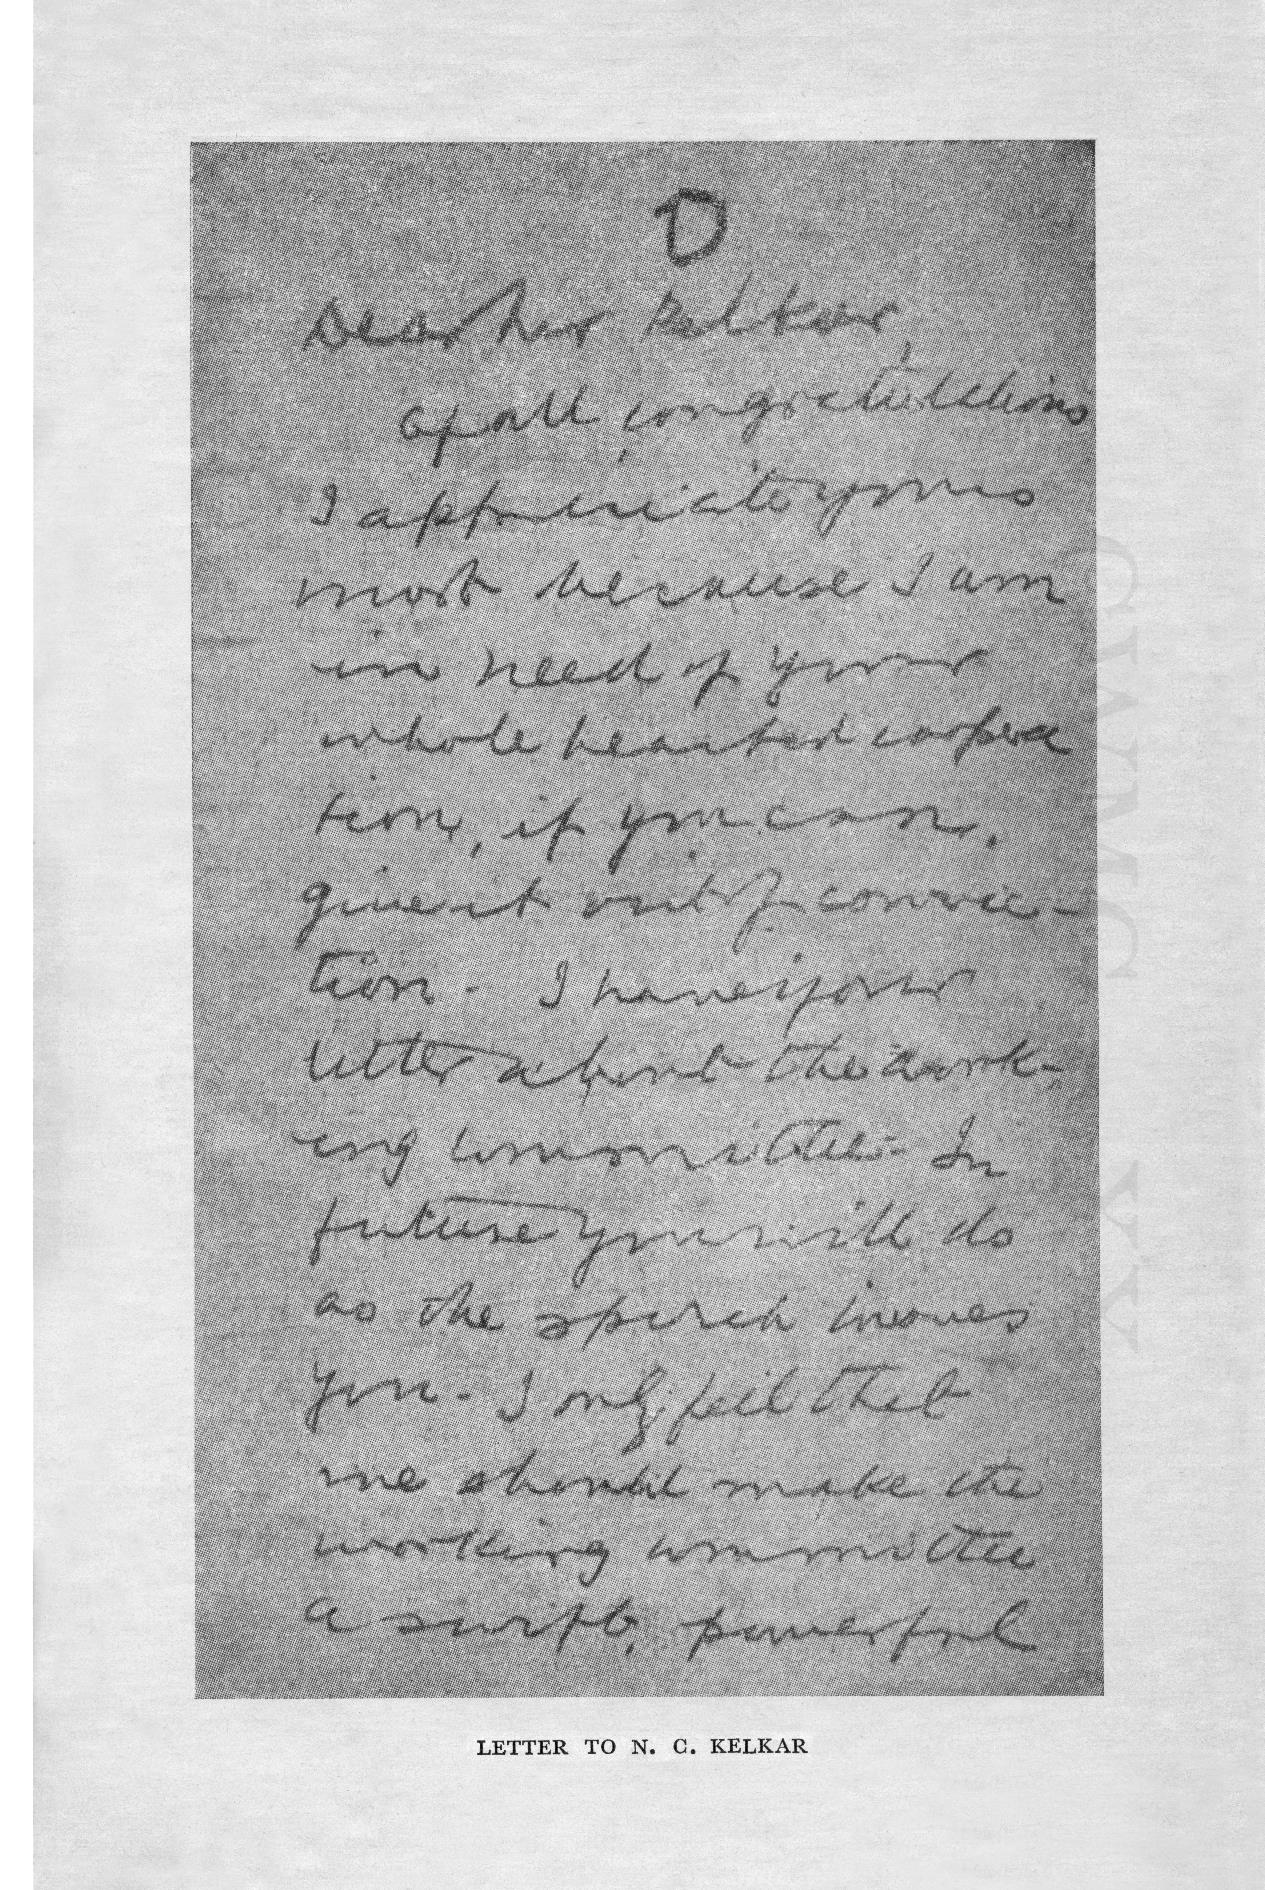 D
Dear Mr Kelkar,
Of all congratulations
I appreciate yours
most because I am
in need of your
whole hearted coopera
tion, if you can,
give it out of convic-
tion. I have your
letter about the work-
ing committee. In
future you will do
as the spirit moves
you. I only feel that
we should make the
working committee
a swift, powerful
LETTER TO N. C. KELKAR